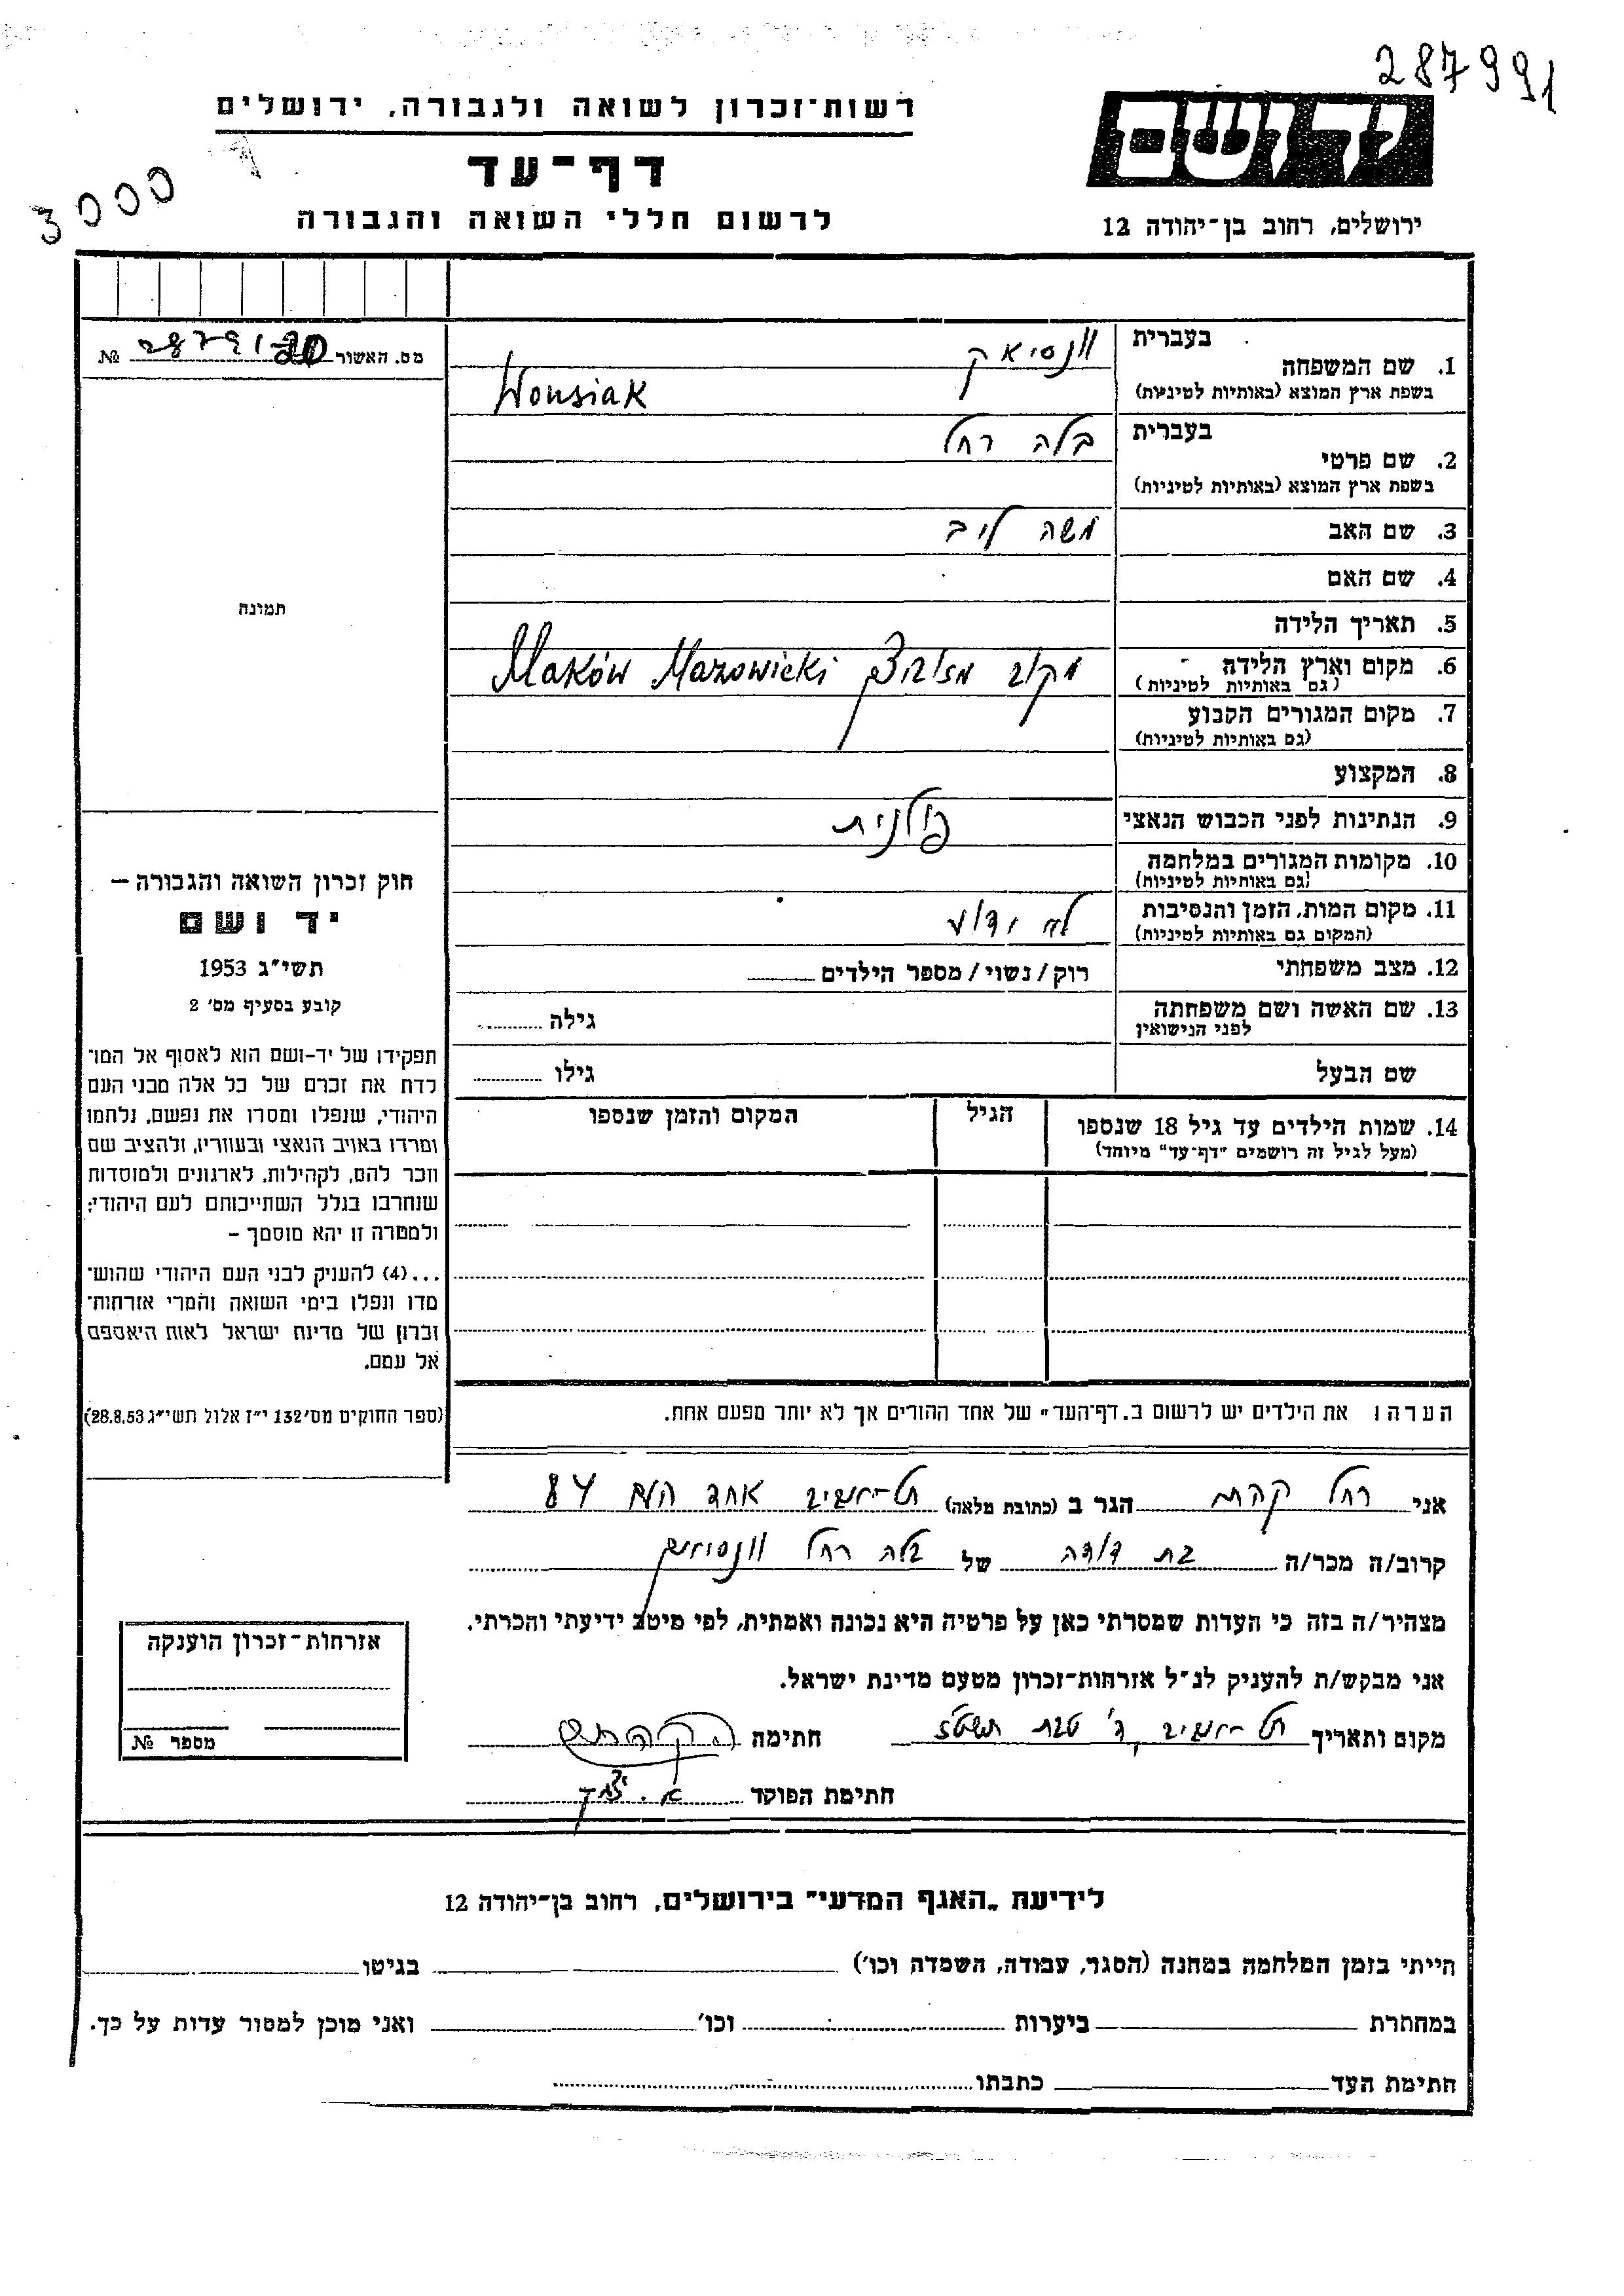 287991
רשות־זכרון לשואה ולגבורה, ירושלים
יד ושם
דף-עד
3000
לרשום חללי השואה והגבורה
ירושלים, רחוב בן-יהודה 12
בעברית
וונסיאק
1. שם המשפחה
בשפת ארץ המוצא (באותיות לטיניות)
Wonsiak
מס. האשור
№
בעברית
בלה רחל
2. שם פרטי
בשפת ארץ המוצא (באותיות לטיניות)
3. שם האב
משה לייב
4. שם האם
תמונה
5. תאריך הלידה
6. מקום וארץ הלידה
(גם באותיות לטיניות)
מקוב מזוביצק Maków Mazowicki
7. מקום המגורים הקבוע
(גם באותיות לטיניות)
8. המקצוע
9. הנתינות לפני הכבוש הנאצי
פולנית
10. מקומות המגורים במלחמה
(גם באותיות לטיניות)
11. מקום המות, הזמן והנסיבות
(המקום גם באותיות לטיניות)
לא ידוע
12. מצב משפחתי
רוק/נשוי/מספר הילדים
13. שם האשה ושם משפחתה
לפני הנישואין
גילה
שם הבעל
גילו
14. שמות הילדים עד גיל 18 שנספו
(מעל לגיל זה רושמים "דף-עד" מיוחד)
הגיל
המקום והזמן שנספו
חוק זכרון השואה והגבורה –
יד ושם
תשי"ג 1953
קובע בסעיף מס' 2
תפקידו של יד-ושם הוא לאסוף אל המו־
לדת את זכרם של כל אלה מבני העם
היהודי, שנפלו ומסרו את נפשם, נלחמו
ומרדו באויב הנאצי ובעוזריו, ולהציב שם
וזכר להם, לקהילות, לארגונים ולמוסדות
שנחרבו בגלל השתייכותם לעם היהודי;
ולמטרה זו יהא מוסמך –
...(4) להעניק לבני העם היהודי שהוש־
מדו ונפלו בימי השואה והמרי אזרחות־
זכרון של מדינת ישראל לאות היאספם
אל עמם.
(ספר החוקים מס' 132 י"ז אלול תשי"ג 28.8.53)
הערה: את הילדים יש לרשום ב„דף-העד" של אחד ההורים אך לא יותר מפעם אחת.
אני רחל קהת הגר ב (כתובת מלאה) תל-אביב אחד העם 84
קרוב/ה מכר/ה בת דודה של בלה רחל וונסיאק
מצהיר/ה בזה כי העדות שמסרתי כאן על פרטיה היא נכונה ואמתית, לפי מיטב ידיעתי והכרתי.
אני מבקש/ת להעניק לנ"ל אזרחות-זכרון מטעם מדינת ישראל.
מקום ותאריך תל-אביב, ד' טבת תשט"ז חתימה ר. קהת
חתימת הפוקד
אזרחות-זכרון הוענקה
מספר №
לידיעת „האגף המדעי" בירושלים, רחוב בן-יהודה 12
הייתי בזמן המלחמה במחנה (הסגר, עבודה, השמדה וכו') בגיטו
במחתרת ביערות וכו' ואני מוכן למסור עדות על כך.
חתימת העד כתבתו